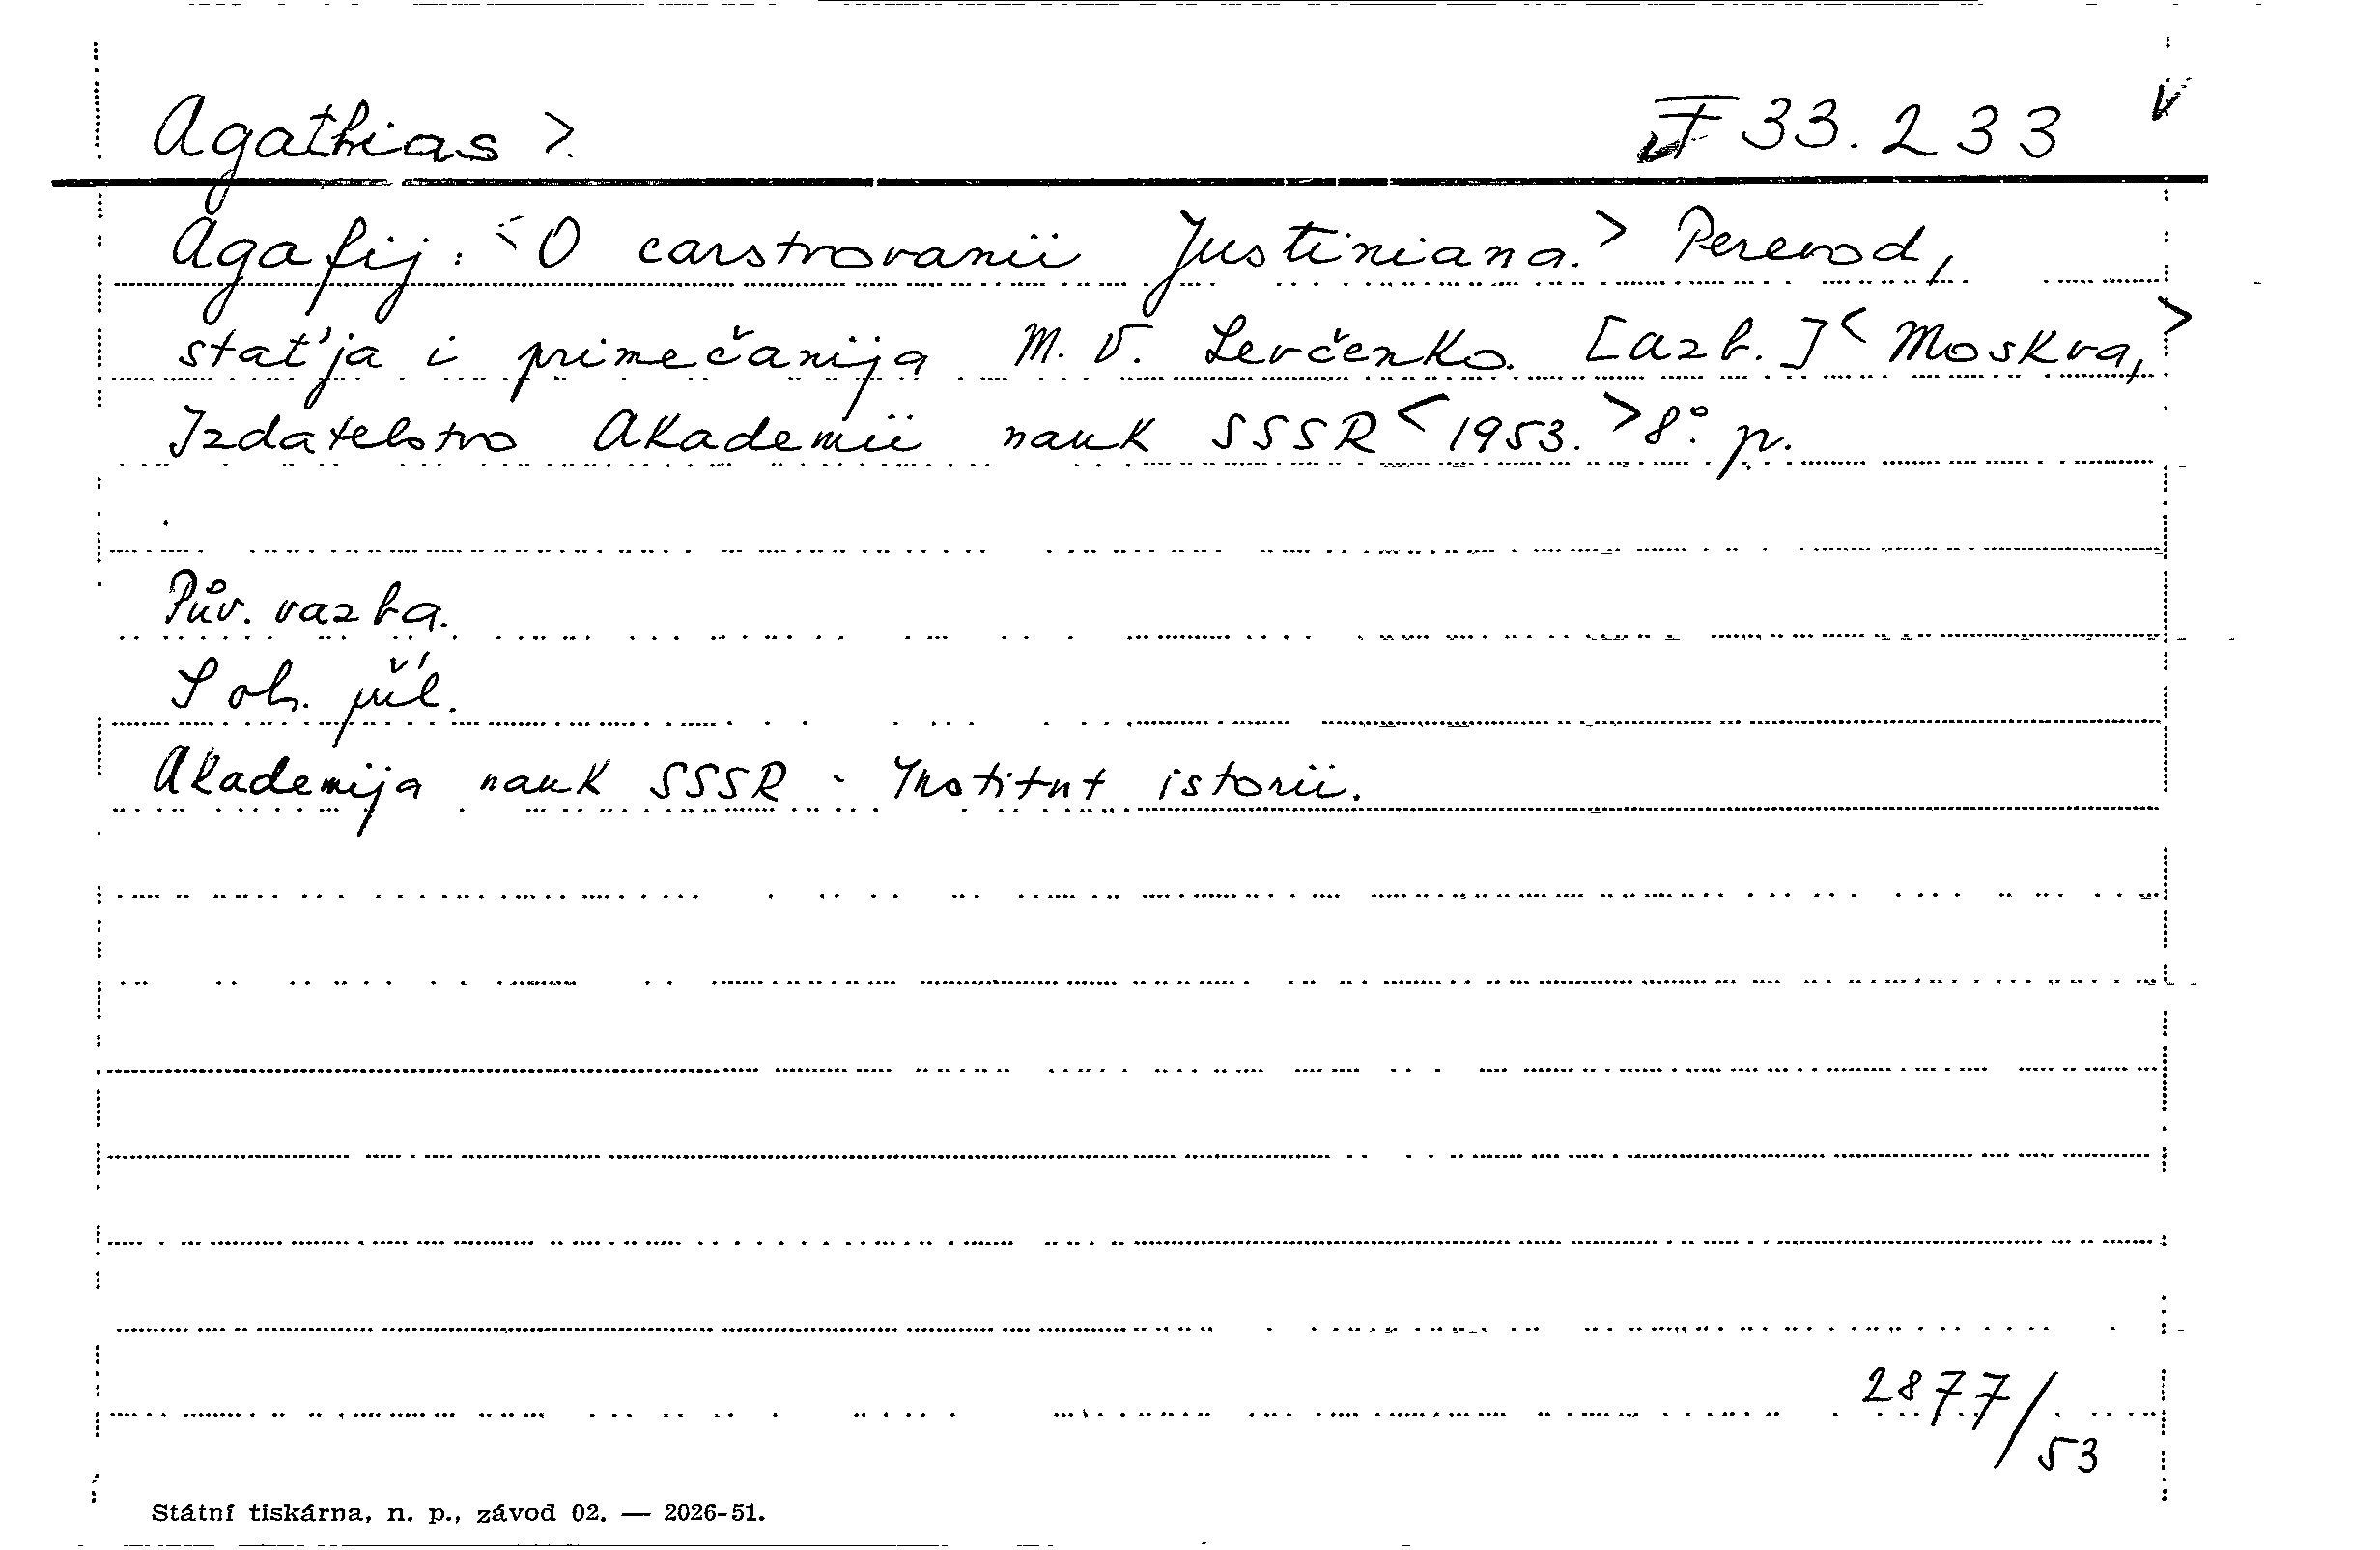 Agathias >. F 33.233 V
Agafij: <O carstvovanii Justiniana.> Perevod,
stat'ja i primečanija M. V. Levčenko. [azb.] < Moskva, >
Izdatelstvo Akademii nauk SSSR < 1953. > 8°. p.
Pův. vazba.
S ob. příl.
Akademija nauk SSSR - Institut istorii.
2877/53
Státní tiskárna, n. p., závod 02. — 2026-51.